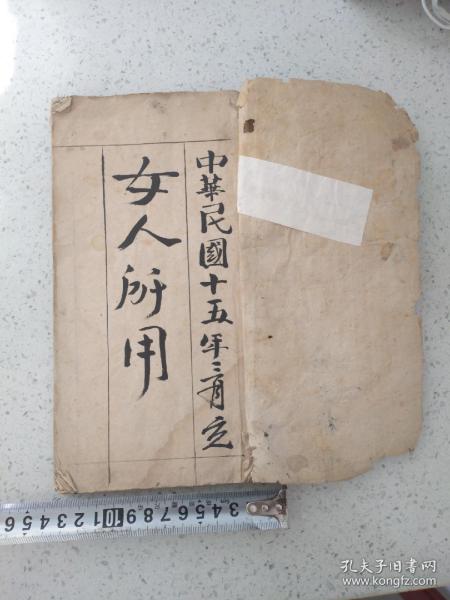 中華民國十五年三月立
女人所用
3 4 5 6 7 8 9 10 1 2 3 4 5 6
3 4 5 6
孔夫子旧书网
www.kongfz.com